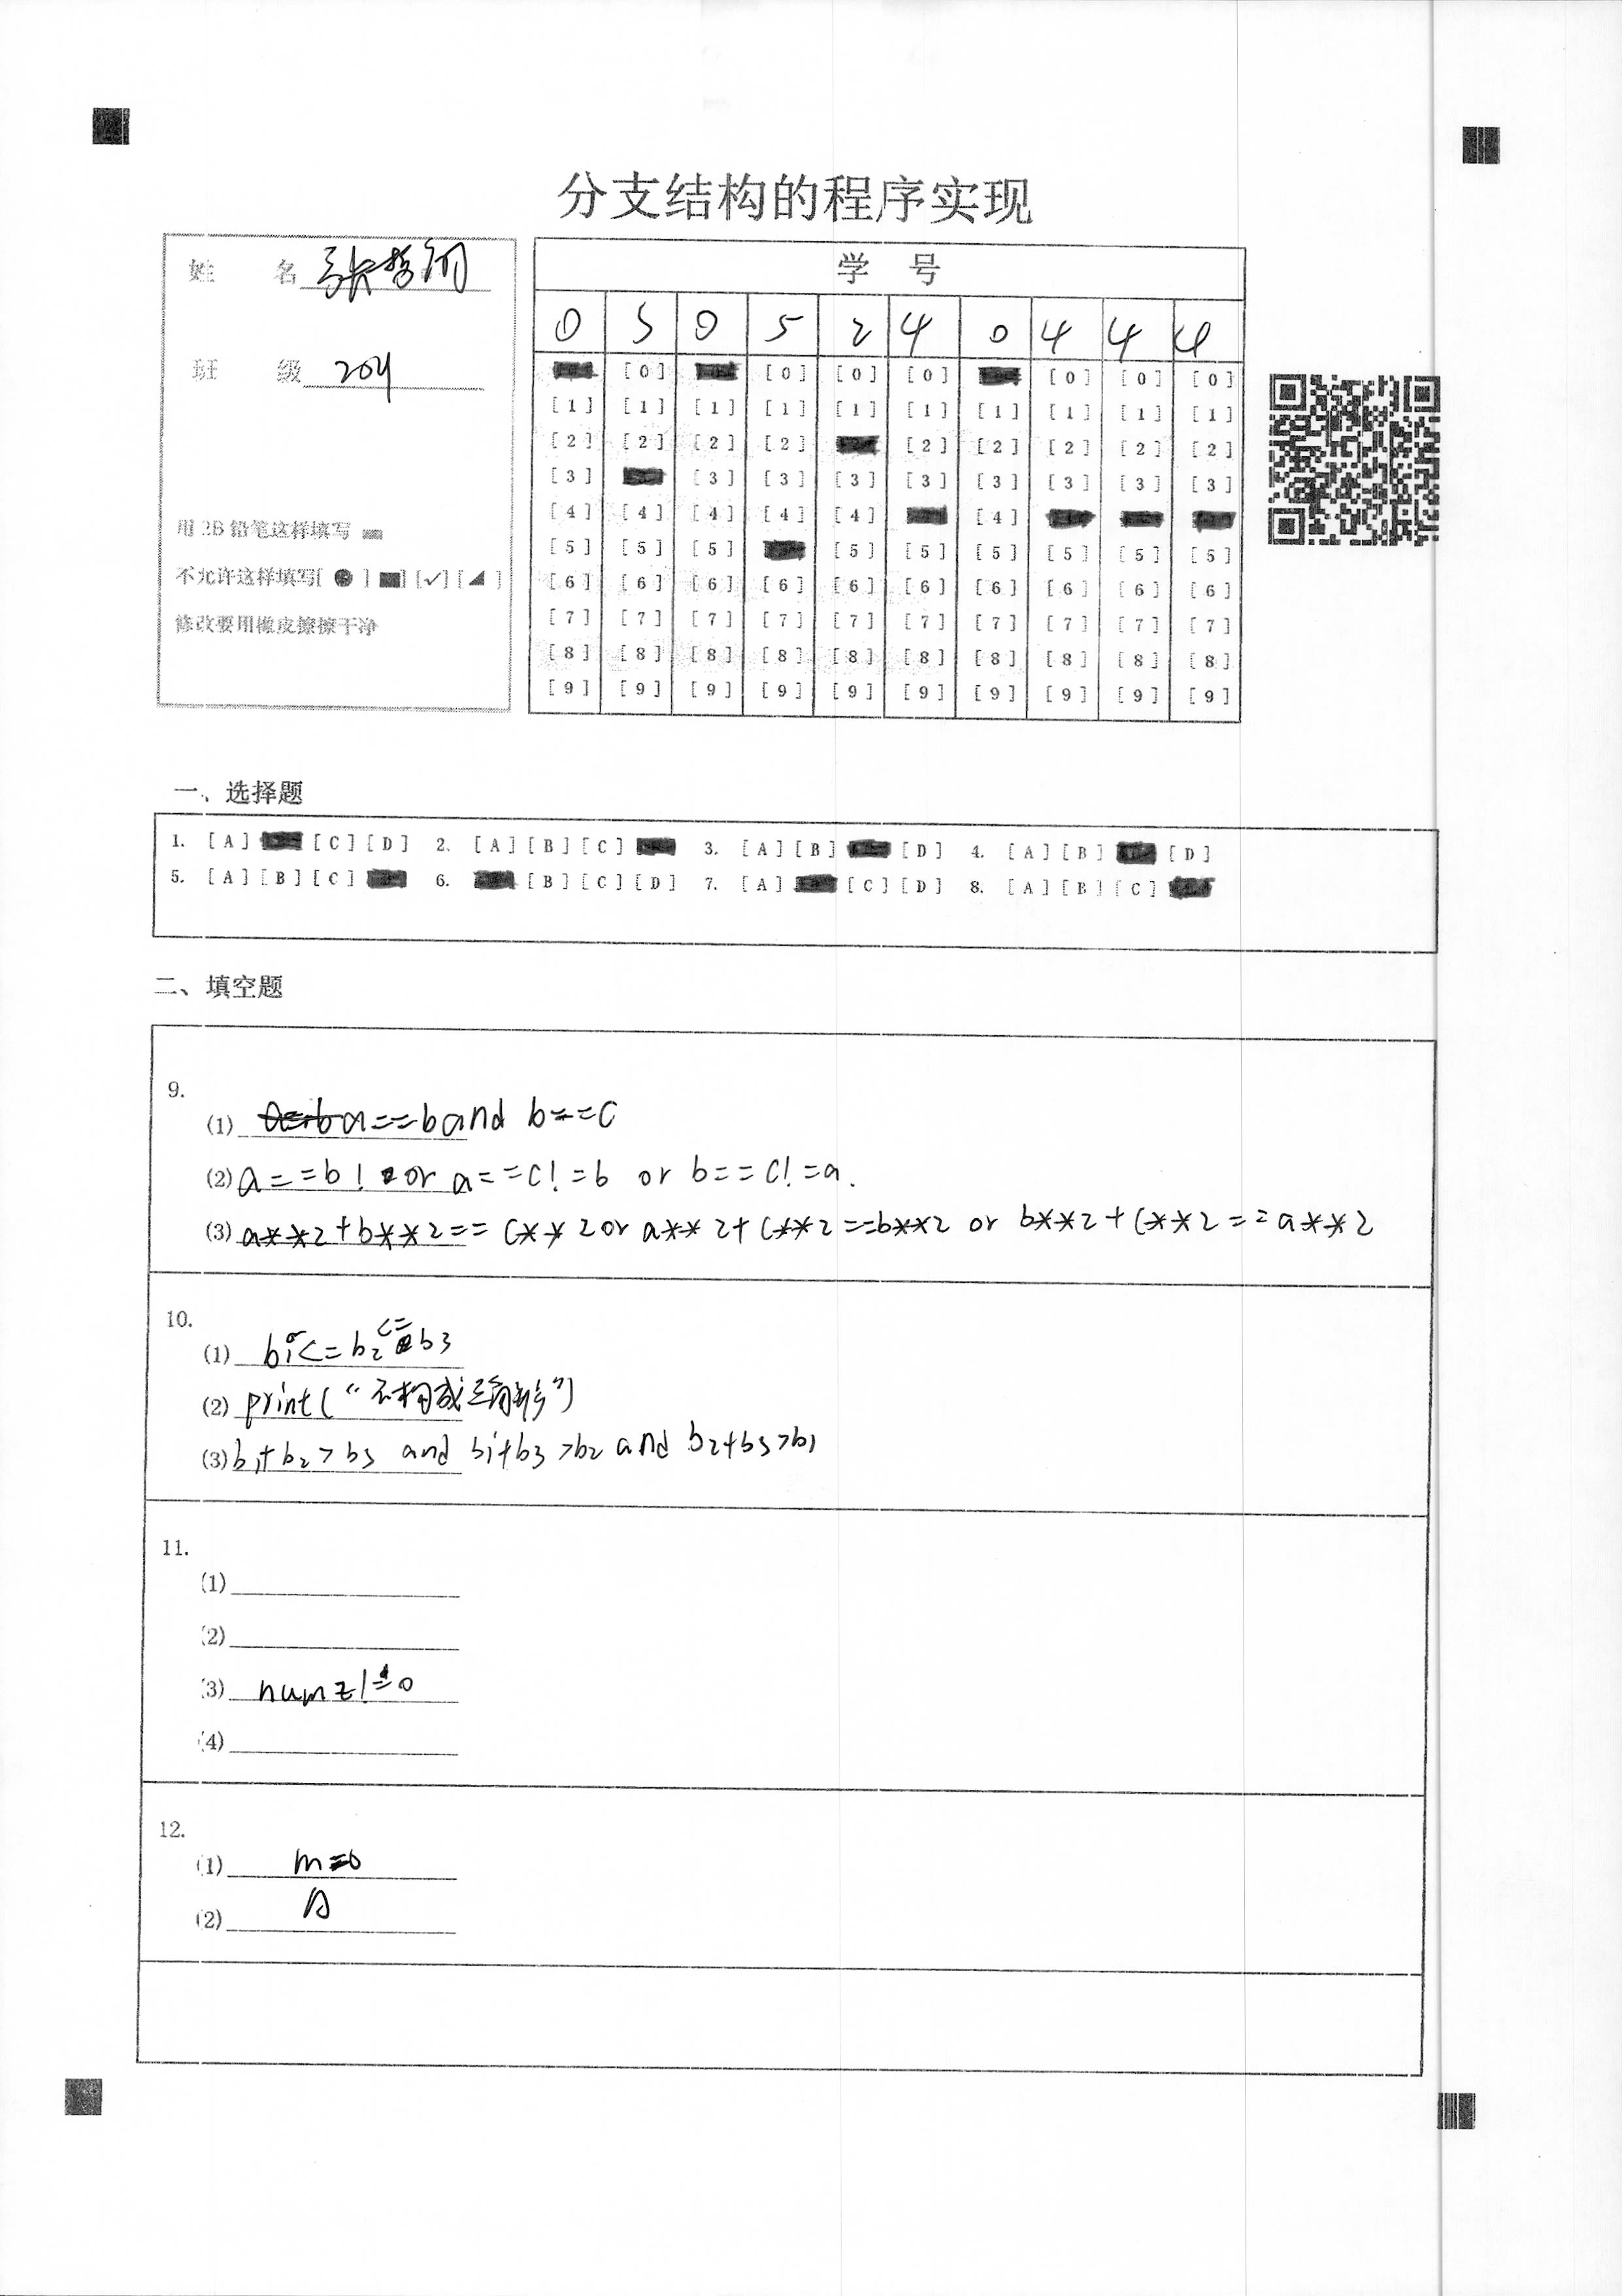 分支结构的程序实现
姓 名 张哲
班 级 204
用 2B 铅笔这样填写
不允许这样填写[ ● ] [■] [✓] [◢]
修改要用橡皮擦擦干净
学 号
0 3 0 5 2 4 0 4 4 4
[0] [0] [0] [0] [0] [0] [0]
[1] [1] [1] [1] [1] [1] [1] [1] [1] [1]
[2] [2] [2] [2] [2] [2] [2] [2] [2]
[3] [3] [3] [3] [3] [3] [3] [3] [3]
[4] [4] [4] [4] [4] [4]
[5] [5] [5] [5] [5] [5] [5] [5] [5]
[6] [6] [6] [6] [6] [6] [6] [6] [6] [6]
[7] [7] [7] [7] [7] [7] [7] [7] [7] [7]
[8] [8] [8] [8] [8] [8] [8] [8] [8] [8]
[9] [9] [9] [9] [9] [9] [9] [9] [9] [9]
一、选择题
1. [A] [C] [D] 2. [A] [B] [C] 3. [A] [B] [D] 4. [A] [B] [D]
5. [A] [B] [C] 6. [B] [C] [D] 7. [A] [C] [D] 8. [A] [B] [C]
二、填空题
9.
(1) a==b and b==c
(2) a==b! or a==c!=b or b==c!=a.
(3) a**2+b**2==c**2 or a**2+c**2==b**2 or b**2+c**2==a**2
10.
(1) b1<=b2<=b3
(2) print("不构成三角形")
(3) b1+b2>b3 and b1+b3>b2 and b2+b3>b1
11.
(1)
(2)
(3) num2!=0
(4)
12.
(1) m=0
(2)